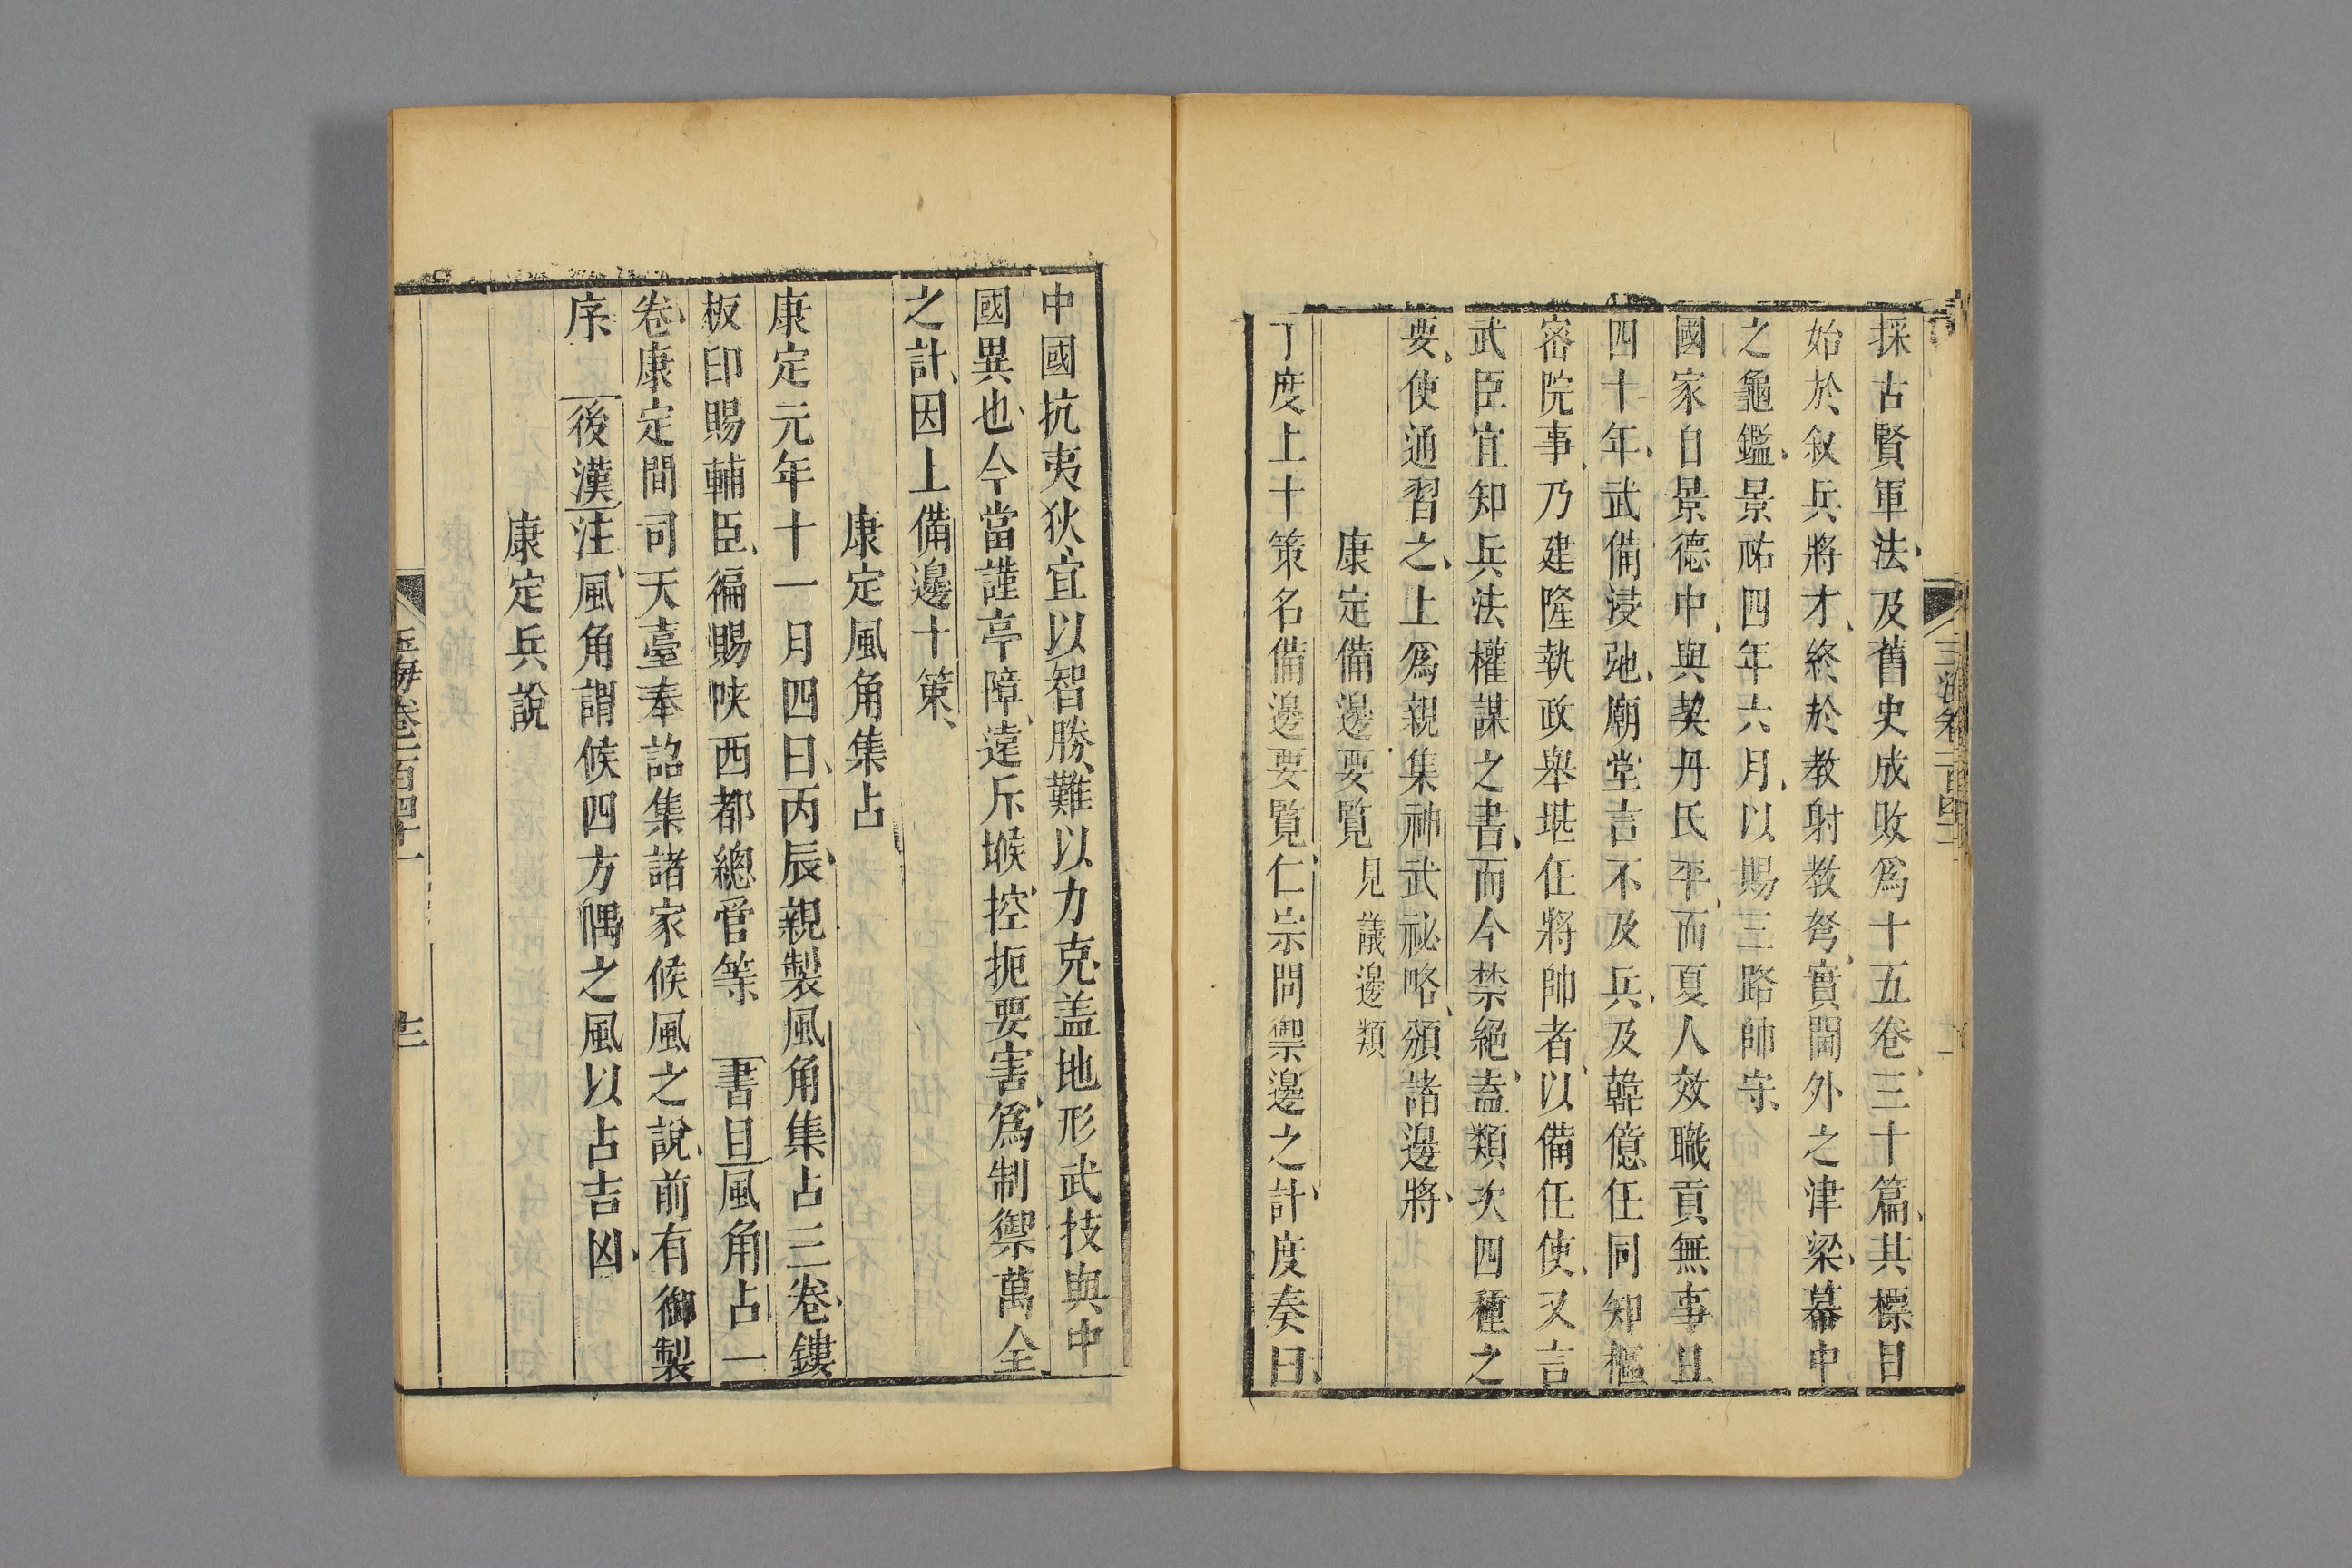 採古賢軍法及舊史成敗爲十五卷三十篇其標目
始於叙兵將才終於教射教弩實閫外之津梁幕中
之龜鑑景祐四年六月以賜三路帥守
國家自景德中與契丹氏平而夏人效職貢無事且
四十年武備浸弛廟堂言不及兵及韓億任同知樞
密院事乃建隆執政舉堪任將帥者以備任使又言
武臣宜知兵法權謀之書而今禁絕盖類次四種之
要使通習之上爲親集神武祕略頒諸邊將
康定備邊要覽 見議邊類
丁度上十策名備邊要覽仁宗問禦邊之計度奏曰
中國抗夷狄宜以智勝難以力克盖地形武技與中
國異也今當謹亭障遠斥堠控扼要害爲制禦萬全
之計因上備邊十策
康定風角集占
康定元年十一月四日丙辰親製風角集占三卷鏤
板印賜輔臣徧賜陝西都總管等 書目風角占一
卷康定間司天臺奉詔集諸家候風之說前有御製
序 後漢注風角謂候四方隅之風以占吉凶
康定兵說
玉海卷一百四十一